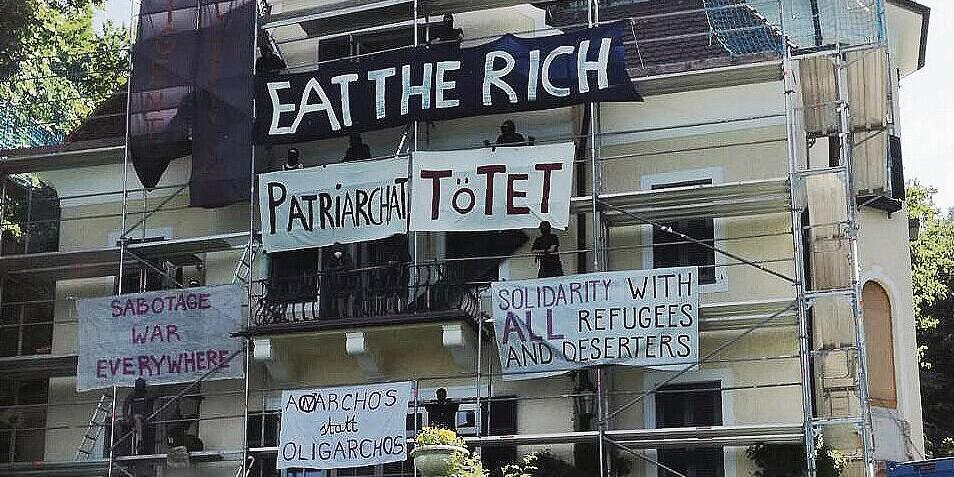 EAT THE RICH
PATRIARCHAT TÖTET
SABOTAGE
WAR
EVERYWHERE
SOLIDARITY WITH
ALL REFUGEES
AND DESERTERS
ANARCHOS
statt
OLIGARCHOS